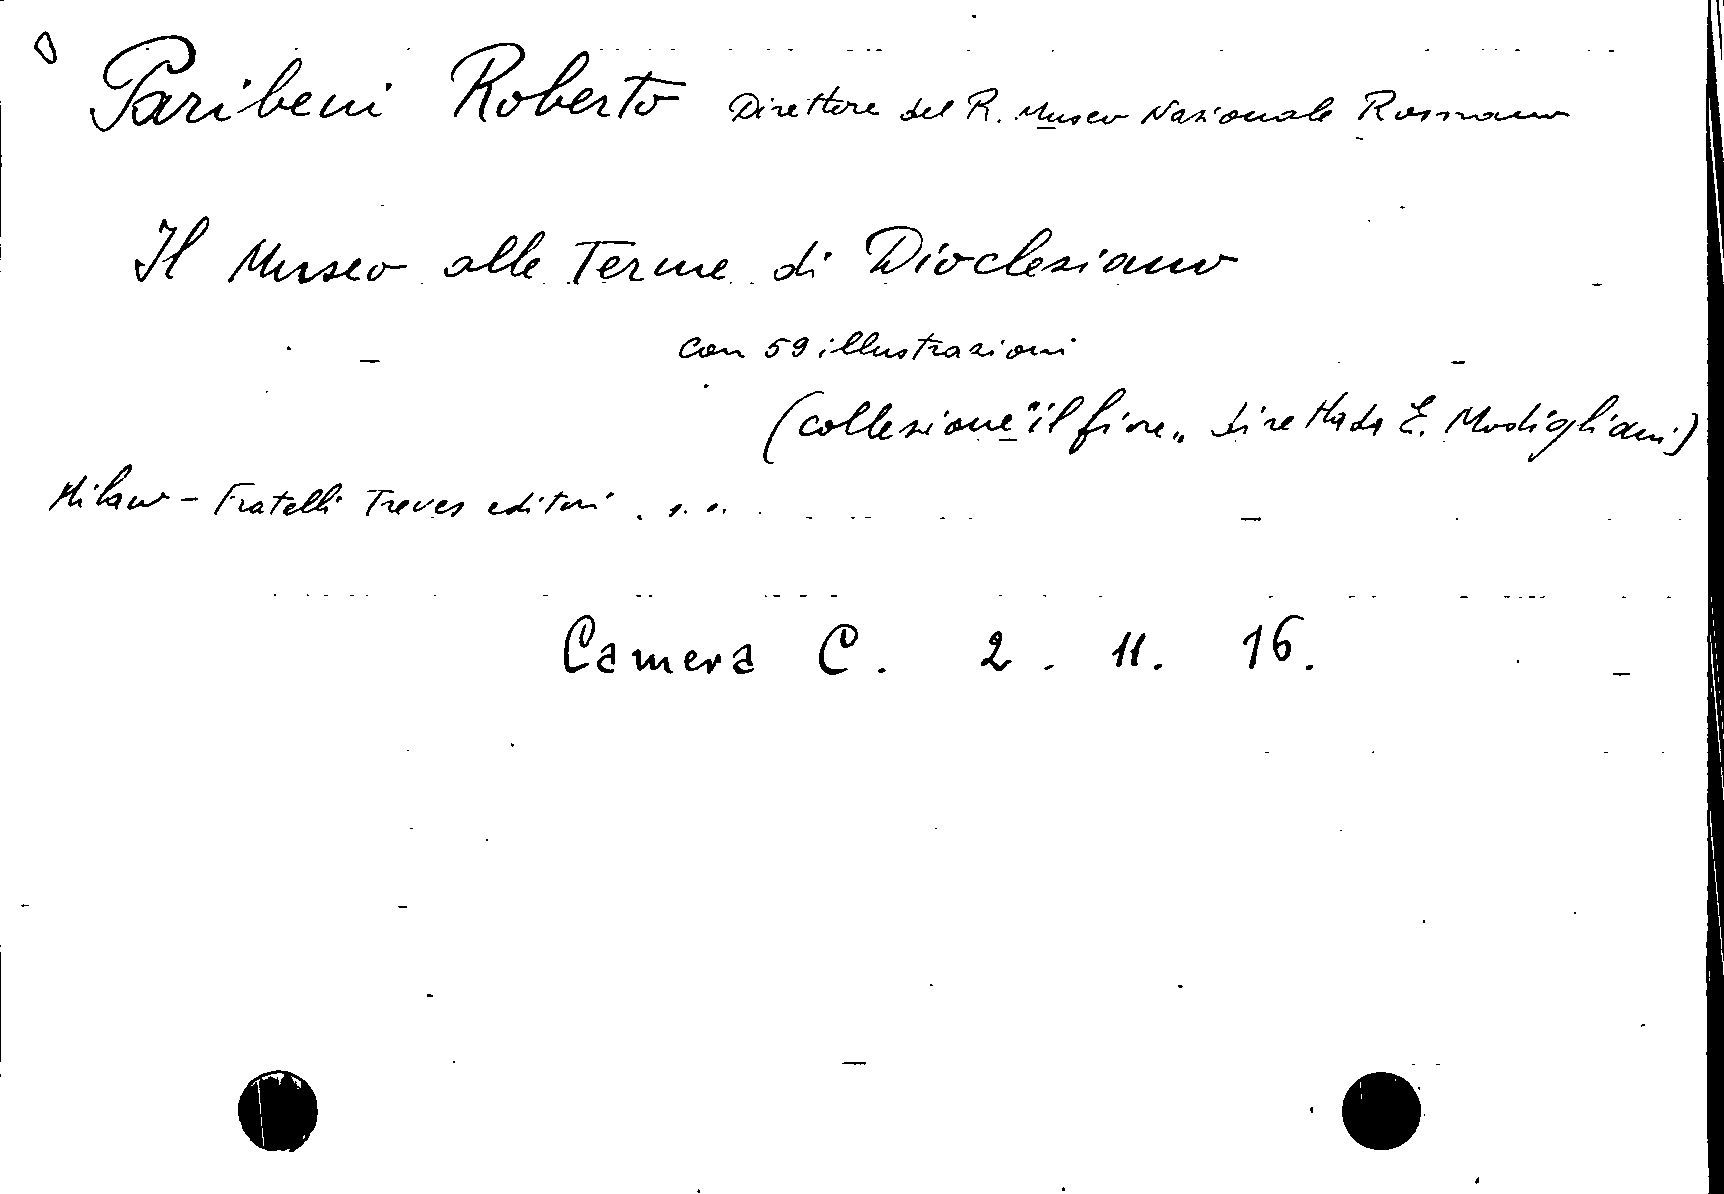 Paribeni Roberto Direttore del R. Museo Nazionale Romano
Il Museo alle Terme di Diocleziano
con 59 illustrazioni
(collezione "il fiore„ diretta da E. Modigliani)
Milano - Fratelli Treves editori . s. a.
Camera C. 2. 11. 16.